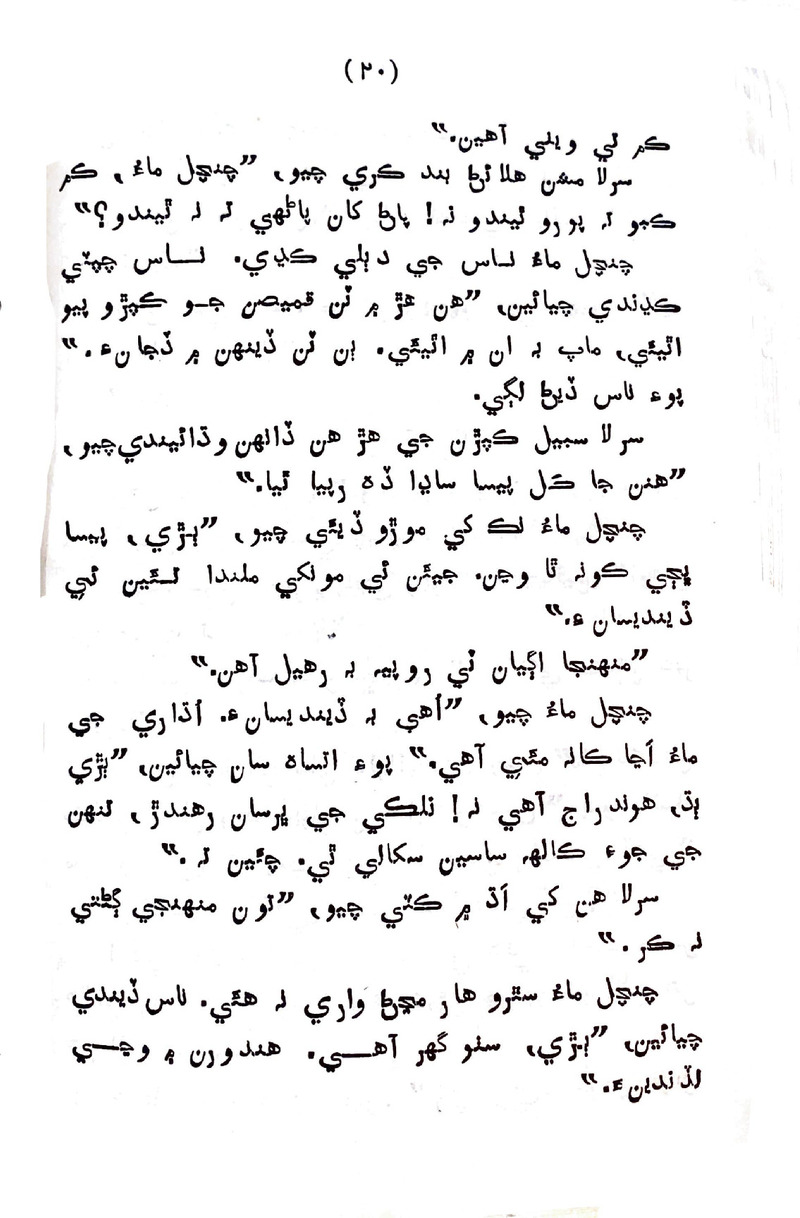 (۲۰)
ڪم ئي ويٺي آهين.“
سرلا مشن هلائڻ بند ڪري چيو، ”چنچل ماءُ، ڪم
ڪبو تہ پورو ٿيندو نہ! پاڻ کان پاڻهي تہ نہ ٿيندو؟“
چنچل ماءُ ناس جي دٻلي ڪڍي. نــاس چپٽي
ڪڍندي چيائين، ”هن هڙ ۾ ٽن قميصن جــو ڪپڙو پيو
اٿيئي، ماپ بہ ان ۾ اٿيئي. ٻن ٽن ڏينهن ۾ ڏجانءِ.“
پوءِ ناس ڏيڻ لڳي.
سرلا سبيل ڪپڙن جي هڙ هن ڏانهن وڌائيندي چيو،
”هنن جا ڪل پيسا ساڍا ڏھ رپيا ٿيا.“
چنچل ماءُ نڪ کي موڙو ڏيئي چيو، ”ٻڙي، پيسا
ڀڄي ڪونہ ٿا وڃن. جيئن ئي مونکي ملندا تــئين ئي
ڏيندیسانءِ.“
”منهنجا اڳيان ٽي روپيہ بہ رهيل آهن.“
چنچل ماءُ چيو، ”اُهي بہ ڏيندیسانءِ. اُڌاري جي
ماءُ اڃا ڪانہ مئي آهي.“ پوءِ اتساھ سان چيائين، ”ٻڙي
ٻڌ، هوندراج آهي نہ! نلڪي جي ڀرسان رهندڙ، تنهن
جي جوءِ ڪالهہ ساسين سکالي ٿي. چئين تہ.“
سرلا هن کي اڌ ۾ ڪٽي چيو، ”تون منهنجي ڳڻتي
نہ ڪر.“
چنچل ماءُ سڌرو هار مڃڻ واري نہ هئي. ناس ڏيندي
چيائين، ”ٻڙي، سٺو گهر آهــي. هندورن ۾ وڃــي
لڏندينءَ.“